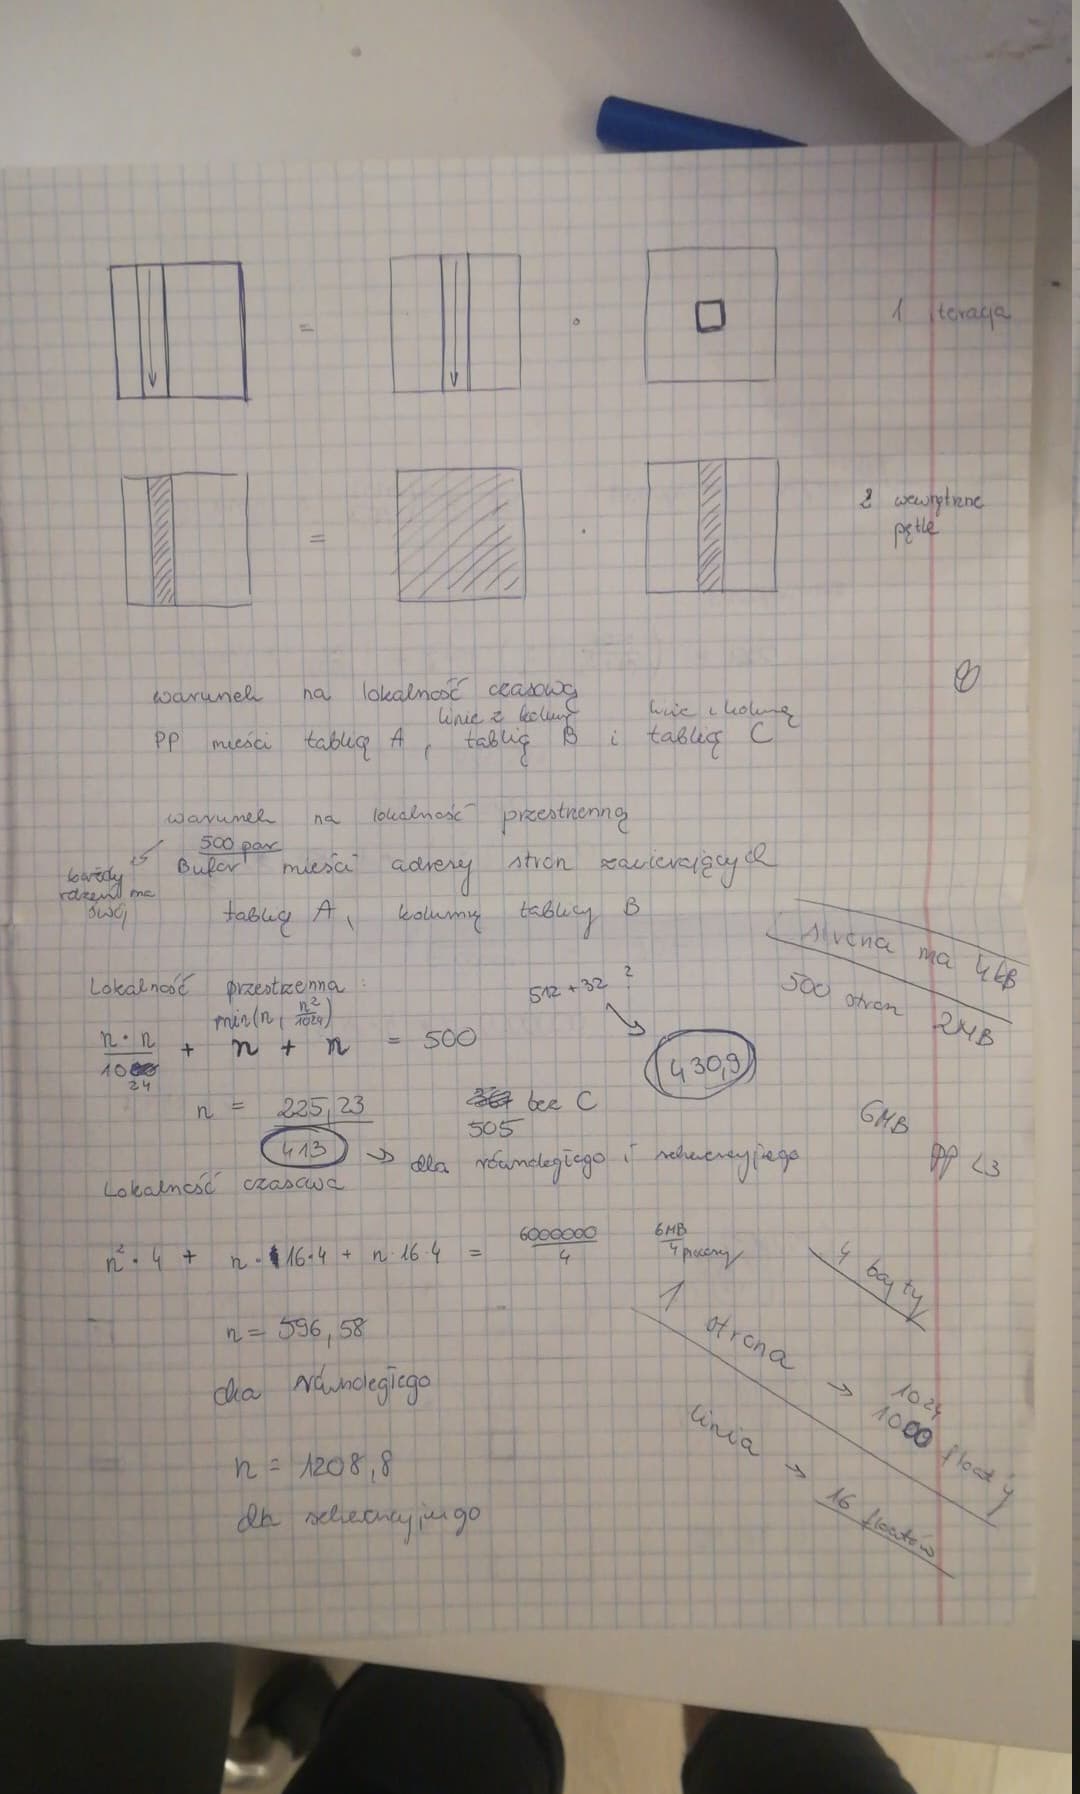 =
·
1 iteracja
=
·
2 wewnętrzne
pętle
warunek na lokalność czasową
linie z kolumn
linie z kolumn
PP mieści tablicę A, tablicę B i tablicę C
warunek na lokalność przestrzenną
500 par
każdy
rdzeń ma
swój
Bufor mieści adresy stron zawierających
tablicę A, kolumnę tablicy B
strona ma 4kB
500 stron
2MB
Lokalność przestrzenna:
min(n, n²/1024)
512+32 ?
n·n/1024 + n + n = 500
430,9
n = 225,23
bez C
505
413 → dla równoległego i sekwencyjnego
6MB
PP L3
Lokalność czasowa
n²·4 + n·16·4 + n·16·4 = 6000000/4
6MB/4 procesy
4 bajty
n = 596,58
dla równoległego
1 strona → 1024 floatów
linia → 16 floatów
n = 1208,8
dla sekwencyjnego